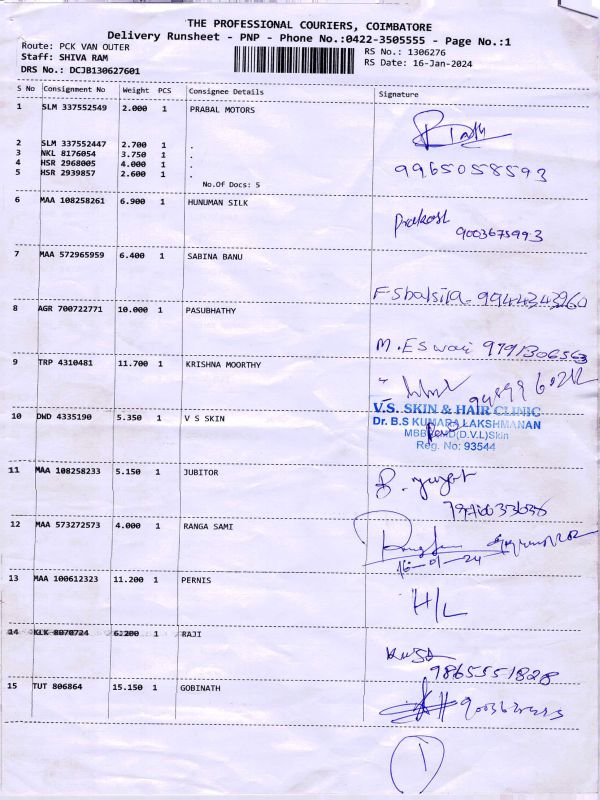 THE PROFESSIONAL COURIERS, COIMBATORE
Delivery Runsheet - PNP - Phone No.:0422-3505555 - Page No.:1
Route: PCK VAN OUTER RS No.: 1306276
Staff: SHIVA RAM RS Date: 16-Jan-2024
DRS No.: DCJB130627601
S No Consignment No Weight PCS Consignee Details Signature
1 SLM 337552549 2.000 1 PRABAL MOTORS
2 SLM 337552447 2.700 1 .
3 NKL 8176054 3.750 1 .
4 HSR 2968005 4.000 1 .
5 HSR 2939857 2.600 1 .
9965058593
No.Of Docs: 5
6 MAA 108258261 6.900 1 HUNUMAN SILK
Prakash 9003675993
7 MAA 572965959 6.400 1 SABINA BANU
9944343960
8 AGR 700722771 10.000 1 PASUBHATHY
M.Eswari 9791306563
9 TRP 4310481 11.700 1 KRISHNA MOORTHY
V.S. SKIN & HAIR CLINIC
10 DWD 4335190 5.350 1 V S SKIN
Dr. B.S KUMARA LAKSHMANAN
MBBS MD(D.V.L)Skin
Reg. No: 93544
11 MAA 108258233 5.150 1 JUBITOR
12 MAA 573272573 4.000 1 RANGA SAMI
16-01-24
13 MAA 100612323 11.200 1 PERNIS
H/L
14 KLK 8070724 6.200 1 RAJI
9865551828
15 TUT 806864 15.150 1 GOBINATH
1